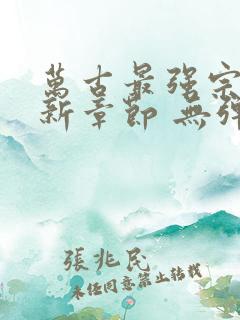 萬古最强宗
新章節 無彈
張兆民
未經同意禁止轉載